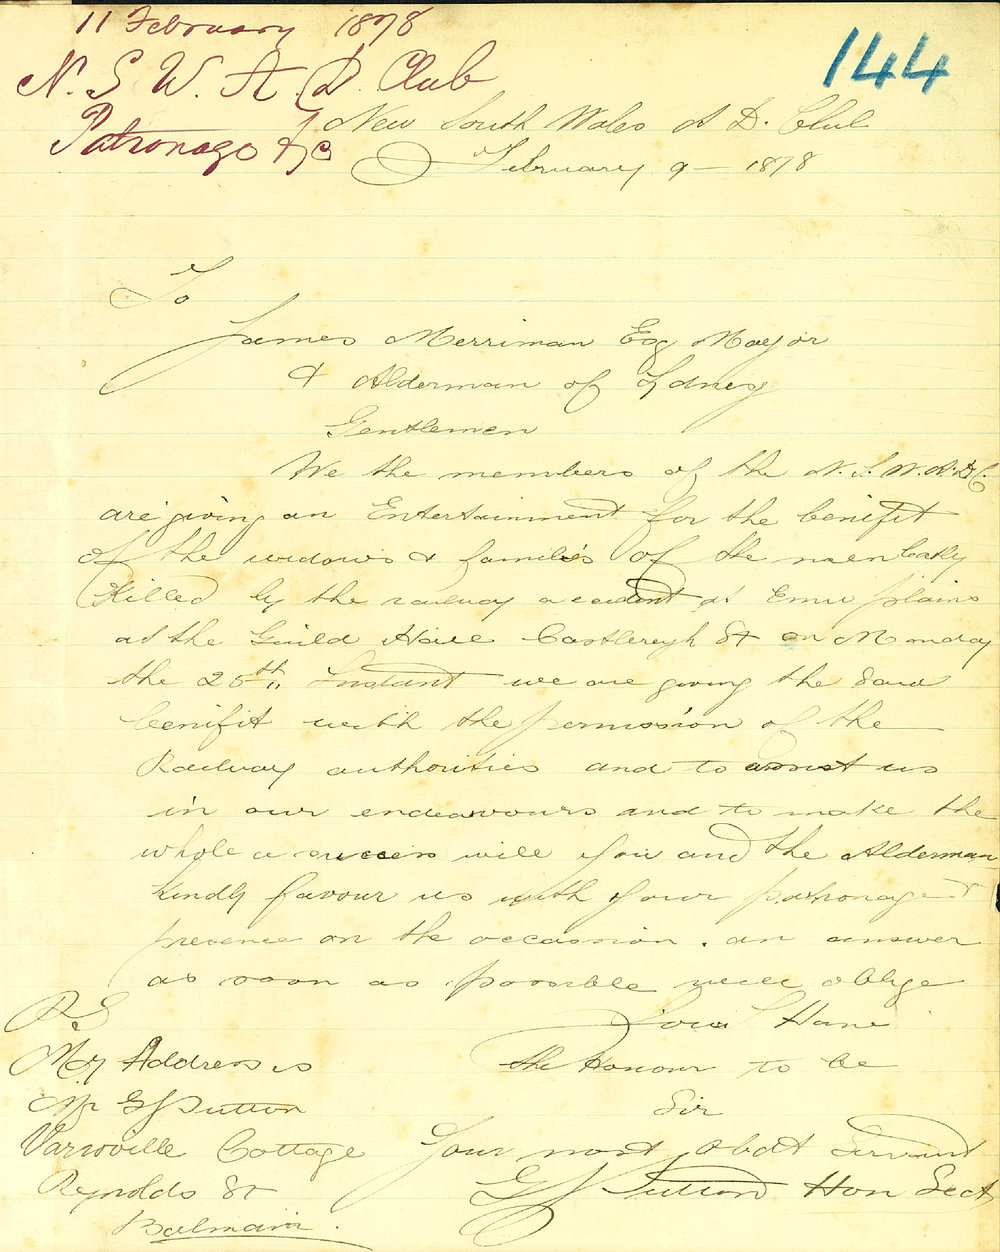 11 February 1878
144
N. S. W. A. D. Club
Patronage &c
New South Wales A D. Club
February 9 – 1878
To
James Merriman Esq Mayor
& Alderman of Sydney
Gentlemen
We the members of the N. S. W. A. D C.
are giving an Entertainment for the benifit
of the widows & families of the men lately
Killed by the railway accident at Emu plains
at the Guild Hall Castlereagh St on Monday
the 25th,, Instant we are giving the said
benifit with the permission of the
Railway authorities and to assist us
in our endeavours and to make the
whole a success will you and the Alderman
kindly favour us with your patronage &
presence on the occassion . an answer
as soon as possible will oblige
Sir I Have
the Honour to be
Sir
Your most obdt Servant
G S Sutton Hon Sect
P.S
My Address is
Mr G S Sutton
Cottage
Reynolds St
Balmain.